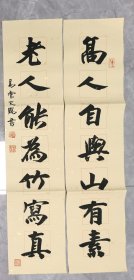 高人自與山有素
老人能為竹寫真